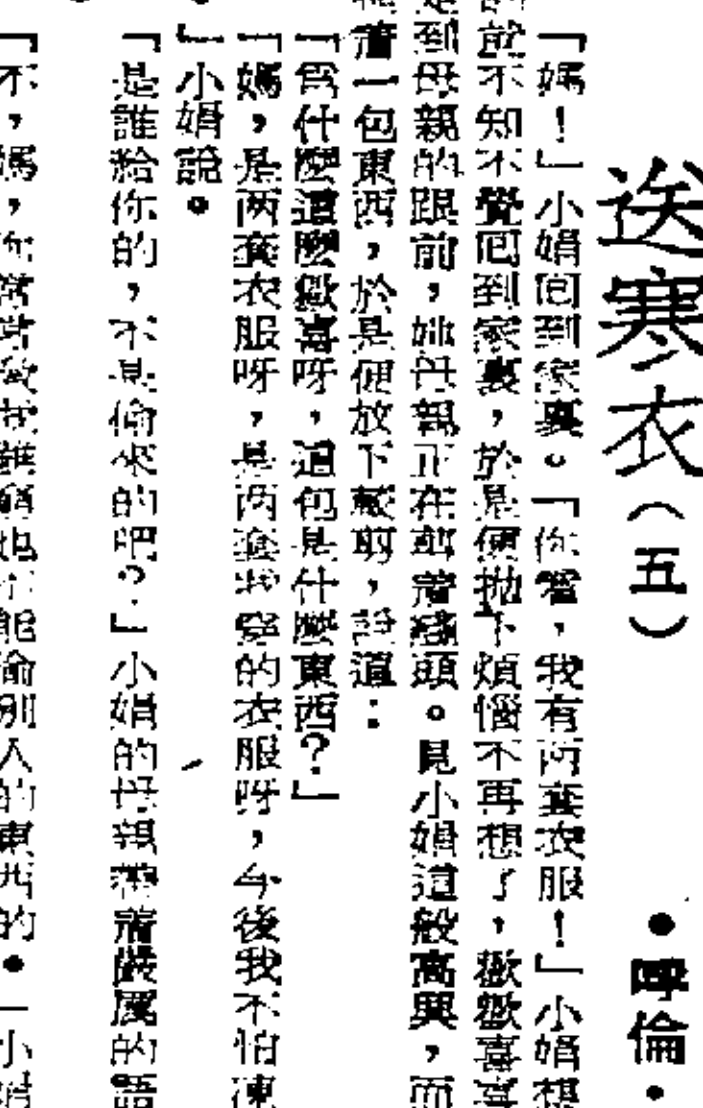 送寒衣（五）
•呼倫•
「媽！」小娟囘到家裏。「你看，我有两套衣服！」小娟想
不知不覺囘到家裏，於是便抛下煩惱不再想了，歡歡喜喜
到母親的跟前，她母親正在剪着線頭。見小娟這般高興，而
着一包東西，於是便放下裁剪，說道：
「爲什麼這麼歡喜呀，這包是什麼東西？」
「媽，是两套衣服呀，是两套我穿的衣服呀，今後我不怕凍
」小娟說。
「是誰給你的，不是偷來的吧？」小娟的母親帶着嚴厲的語
「不，媽，你常常敎 能偷別人的東西的。」小娟